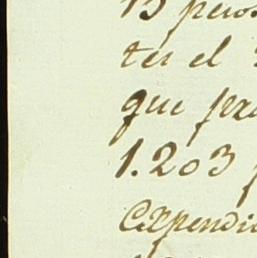 15 pesos
tes el
que pre
1.203 p
Expendi